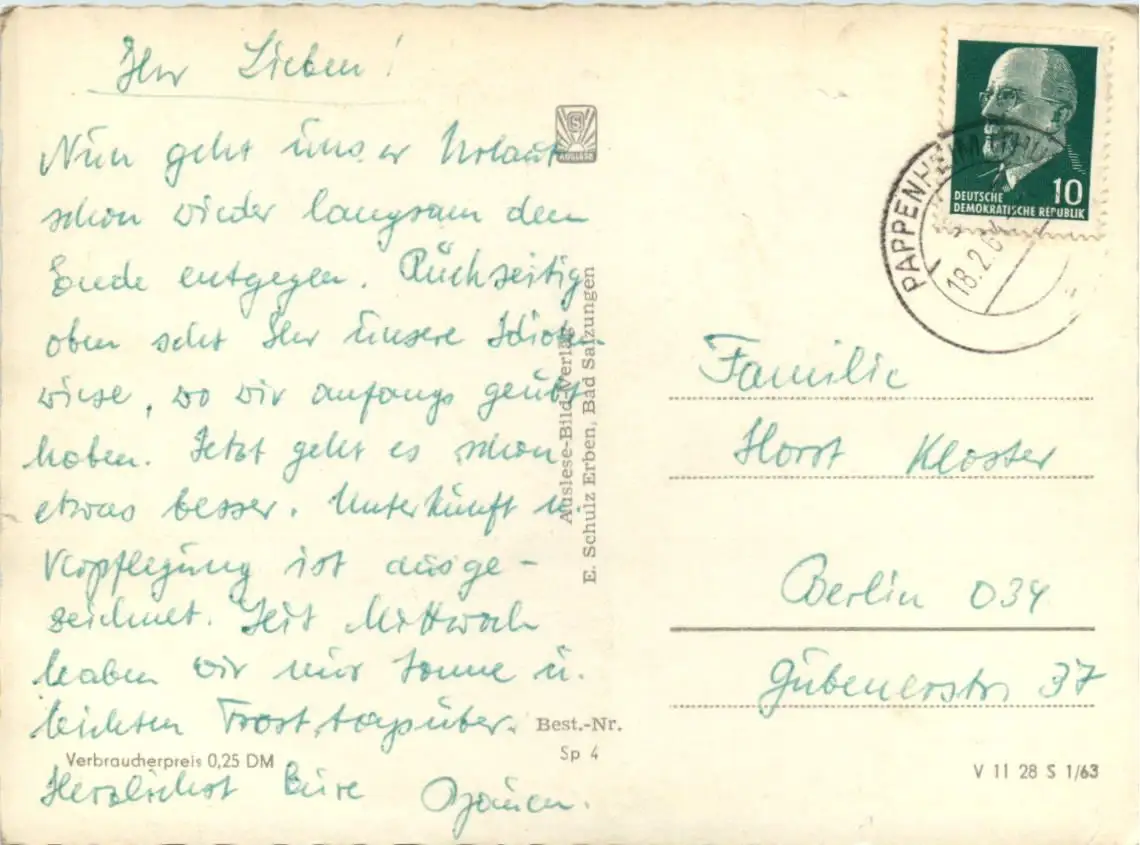 Ihr Lieben!
Nun geht unser Urlaub
schon wieder langsam dem
Ende entgegen. Rückseitig
oben seht Ihr unsere Idioten-
wiese, wo wir anfangs geübt
haben. Jetzt geht es schon
etwas besser. Unterkunft u.
Verpflegung ist ausge-
zeichnet. Seit Mittwoch
haben wir nur Sonne u.
leichten Frost tagsüber.
Herzlichst Eure
Verbraucherpreis 0,25 DM
S
AUSLESE
Auslese-Bild-Verlag
E. Schulz Erben, Bad Salzungen
Best.-Nr.
Sp 4
DEUTSCHE
DEMOKRATISCHE REPUBLIK
10
PAPPENHEIM (THÜR
18.2.64
Familie
Horst Kloster
Berlin O34
Gubenerstr 37
V 11 28 S 1/63